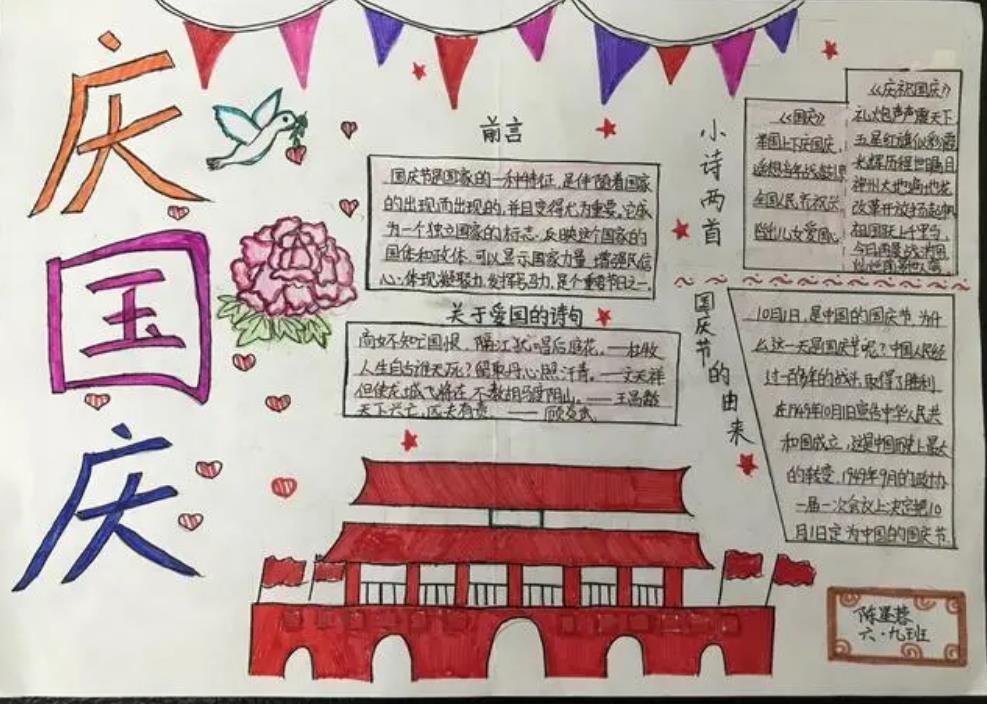 庆
国
庆
前言
国庆节是国家的一种特征,是伴随着国家
的出现而出现的,并且变得尤为重要。它成
为一个独立国家的标志,反映这个国家的
国体和政体,可以显示国家力量,增强民信
心,体现凝聚力,发挥号召力,是个重要节日之一。
关于爱国的诗句
商女不知亡国恨,隔江犹唱后庭花。——杜牧
人生自古谁无死?留取丹心照汗青。——文天祥
但使龙城飞将在,不教胡马度阴山。——王昌龄
天下兴亡,匹夫有责。——顾炎武
小诗两首
《国庆》
举国上下庆国庆,
遥想当年战
全国人民齐
儿女爱国心
《庆祝国庆》
礼炮声声震天下,
五星红旗似彩霞
光辉历程世瞩目
神州大地遍地花
改革开放扬起帆
祖国跃上千里马
今日
国庆节的由来
10月1日,是中国的国庆节,为什
么这一天是国庆节呢?中国人民经
过一百多年的战斗,取得了胜利
在1949年10月1日宣告中华人民共
和国成立,这是中国历史上最大
的转变,1949年9月的政协
一届一次会议上决定把10
月1日定为中国的国庆节.
陈星蓉
六·九班